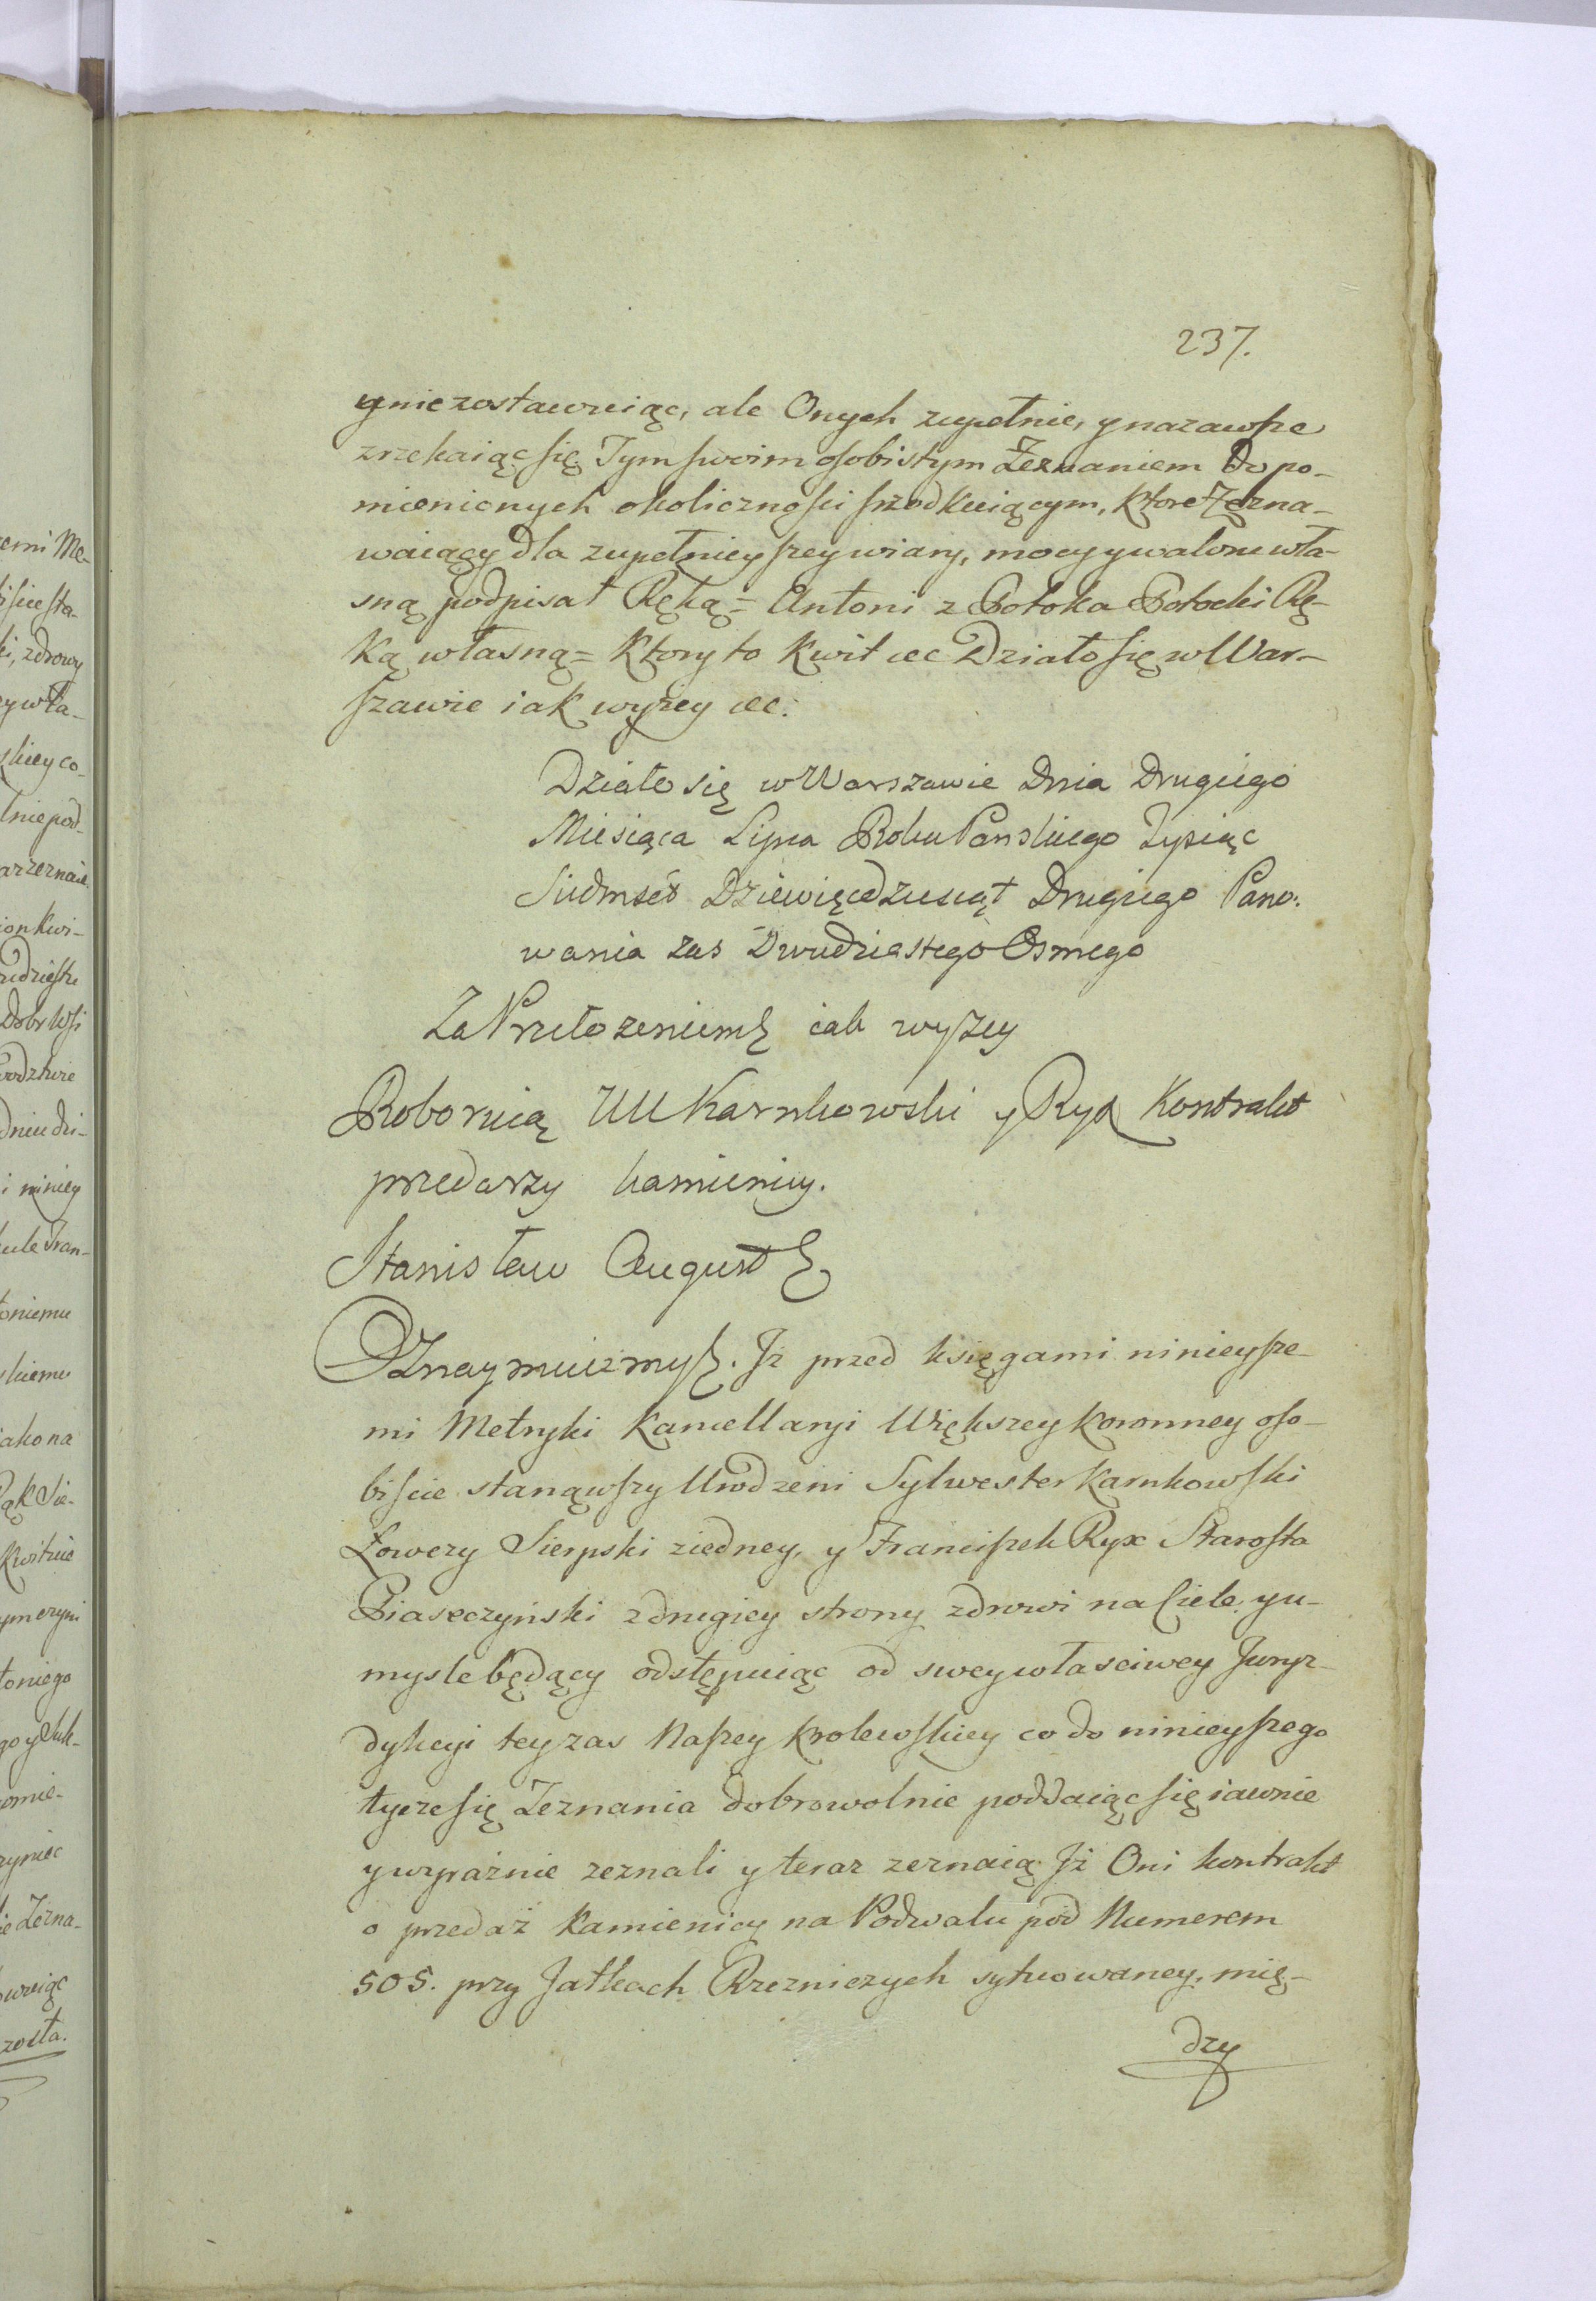 237.
y nie zostawuiąc, ale Onych zupełnie, y nazawsze
zrzekaiąc się Tym swoim osobistym Zeznaniem Do po-
mienionych okolicznosci szrodkuiącym, ktore Zezna-
waiący dla zupełniey szey wiary, mocy y waloru wła-
sną podpisał Ręką = Antoni z Potoka Potocki Rę-
ką własną = Ktory to Kwit &c Działo się w War-
szawie iak wyżey &c:
Działo się w Warszawie Dnia Drugiego
Miesiąca Lipca Roku Panskiego Tysiąc
Siedmset Dziewięcdziesiąt Drugiego Pano:
wania zas Dwudziestego Osmego
Za Przełozeniem iak wyzey
Roboruią UU Karnkowski y Ryx Kontrakt
przedarzy kamienicy.
Stanisław August
Oznaymuiemy. Iż przed księgami ninieysze-
mi Metryki Kancellaryi Większey Koronney oso-
biscie stanąwszy Urodzeni Sylwester Karnkowski
Łowczy Sierpski ziedney, y Franciszek Ryx Starosta
Piaseczyński z drugiey strony zdrowi na Ciele y u-
mysle będący odstępuiąc od swey własciwey Juryz-
dykcyi tey zas Naszey Krolewskiey co do ninieyszego
tycze się Zeznania dobrowolnie poddaiąc się iawnie
y wyraźnie zeznali y teraz zeznaią Iż Oni kontrakt
o przedaż Kamienicy na Podwalu pod Numerem
505. przy Jatkach Rzezniczych sytuowaney, mię-
dzy